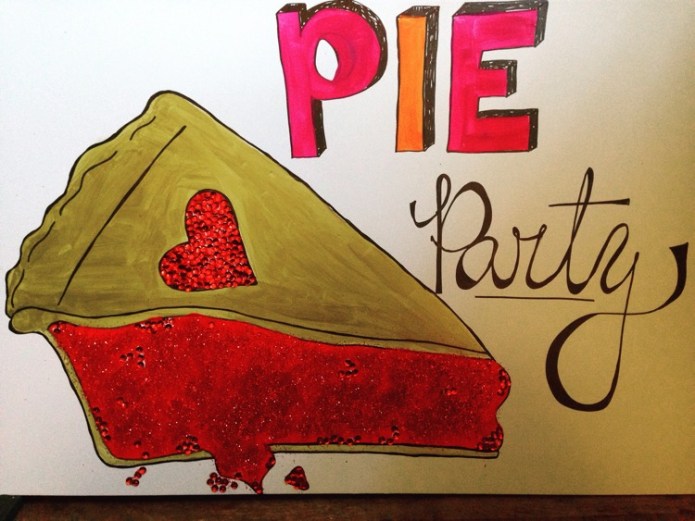 PIE
Party